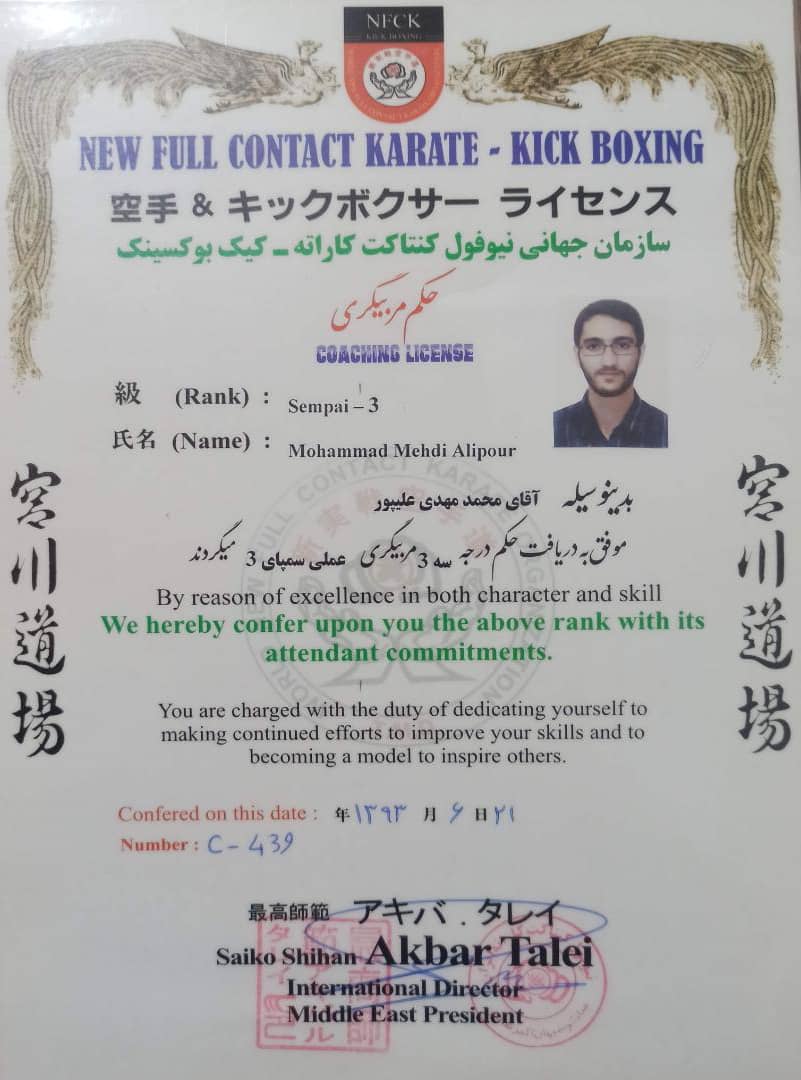 NFCK
KICK BOXING
NEW FULL CONTACT KARATE - KICK BOXING
空手 & キックボクサー ライセンス
سازمان جهانی نیوفول کنتاکت کاراته ـ کیک بوکسینک
حکم مربیگری
COACHING LICENSE
級 (Rank) : Sempai – 3
氏名 (Name) : Mohammad Mehdi Alipour
بدینوسیله آقای محمد مهدی علیپور
موفق به دریافت حکم درجه سه 3 مربیگری عملی سمپای 3 میگردند
By reason of excellence in both character and skill
We hereby confer upon you the above rank with its
attendant commitments.
You are charged with the duty of dedicating yourself to
making continued efforts to improve your skills and to
becoming a model to inspire others.
宮川道場
宮川道場
Confered on this date : 年 ۱۳۹۳ 月 ۶ 日 ۲۱
Number : C - 439
最高師範 アキバ . タレイ
Saiko Shihan Akbar Talei
International Director
Middle East President